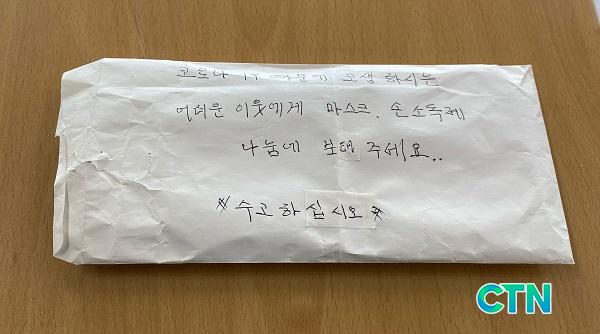 코로나 19 때문에 고생하시는
어려운 이웃에게 마스크, 손소독제
나눔에 보태 주세요..
※ 수고하십시오 ※
CTN